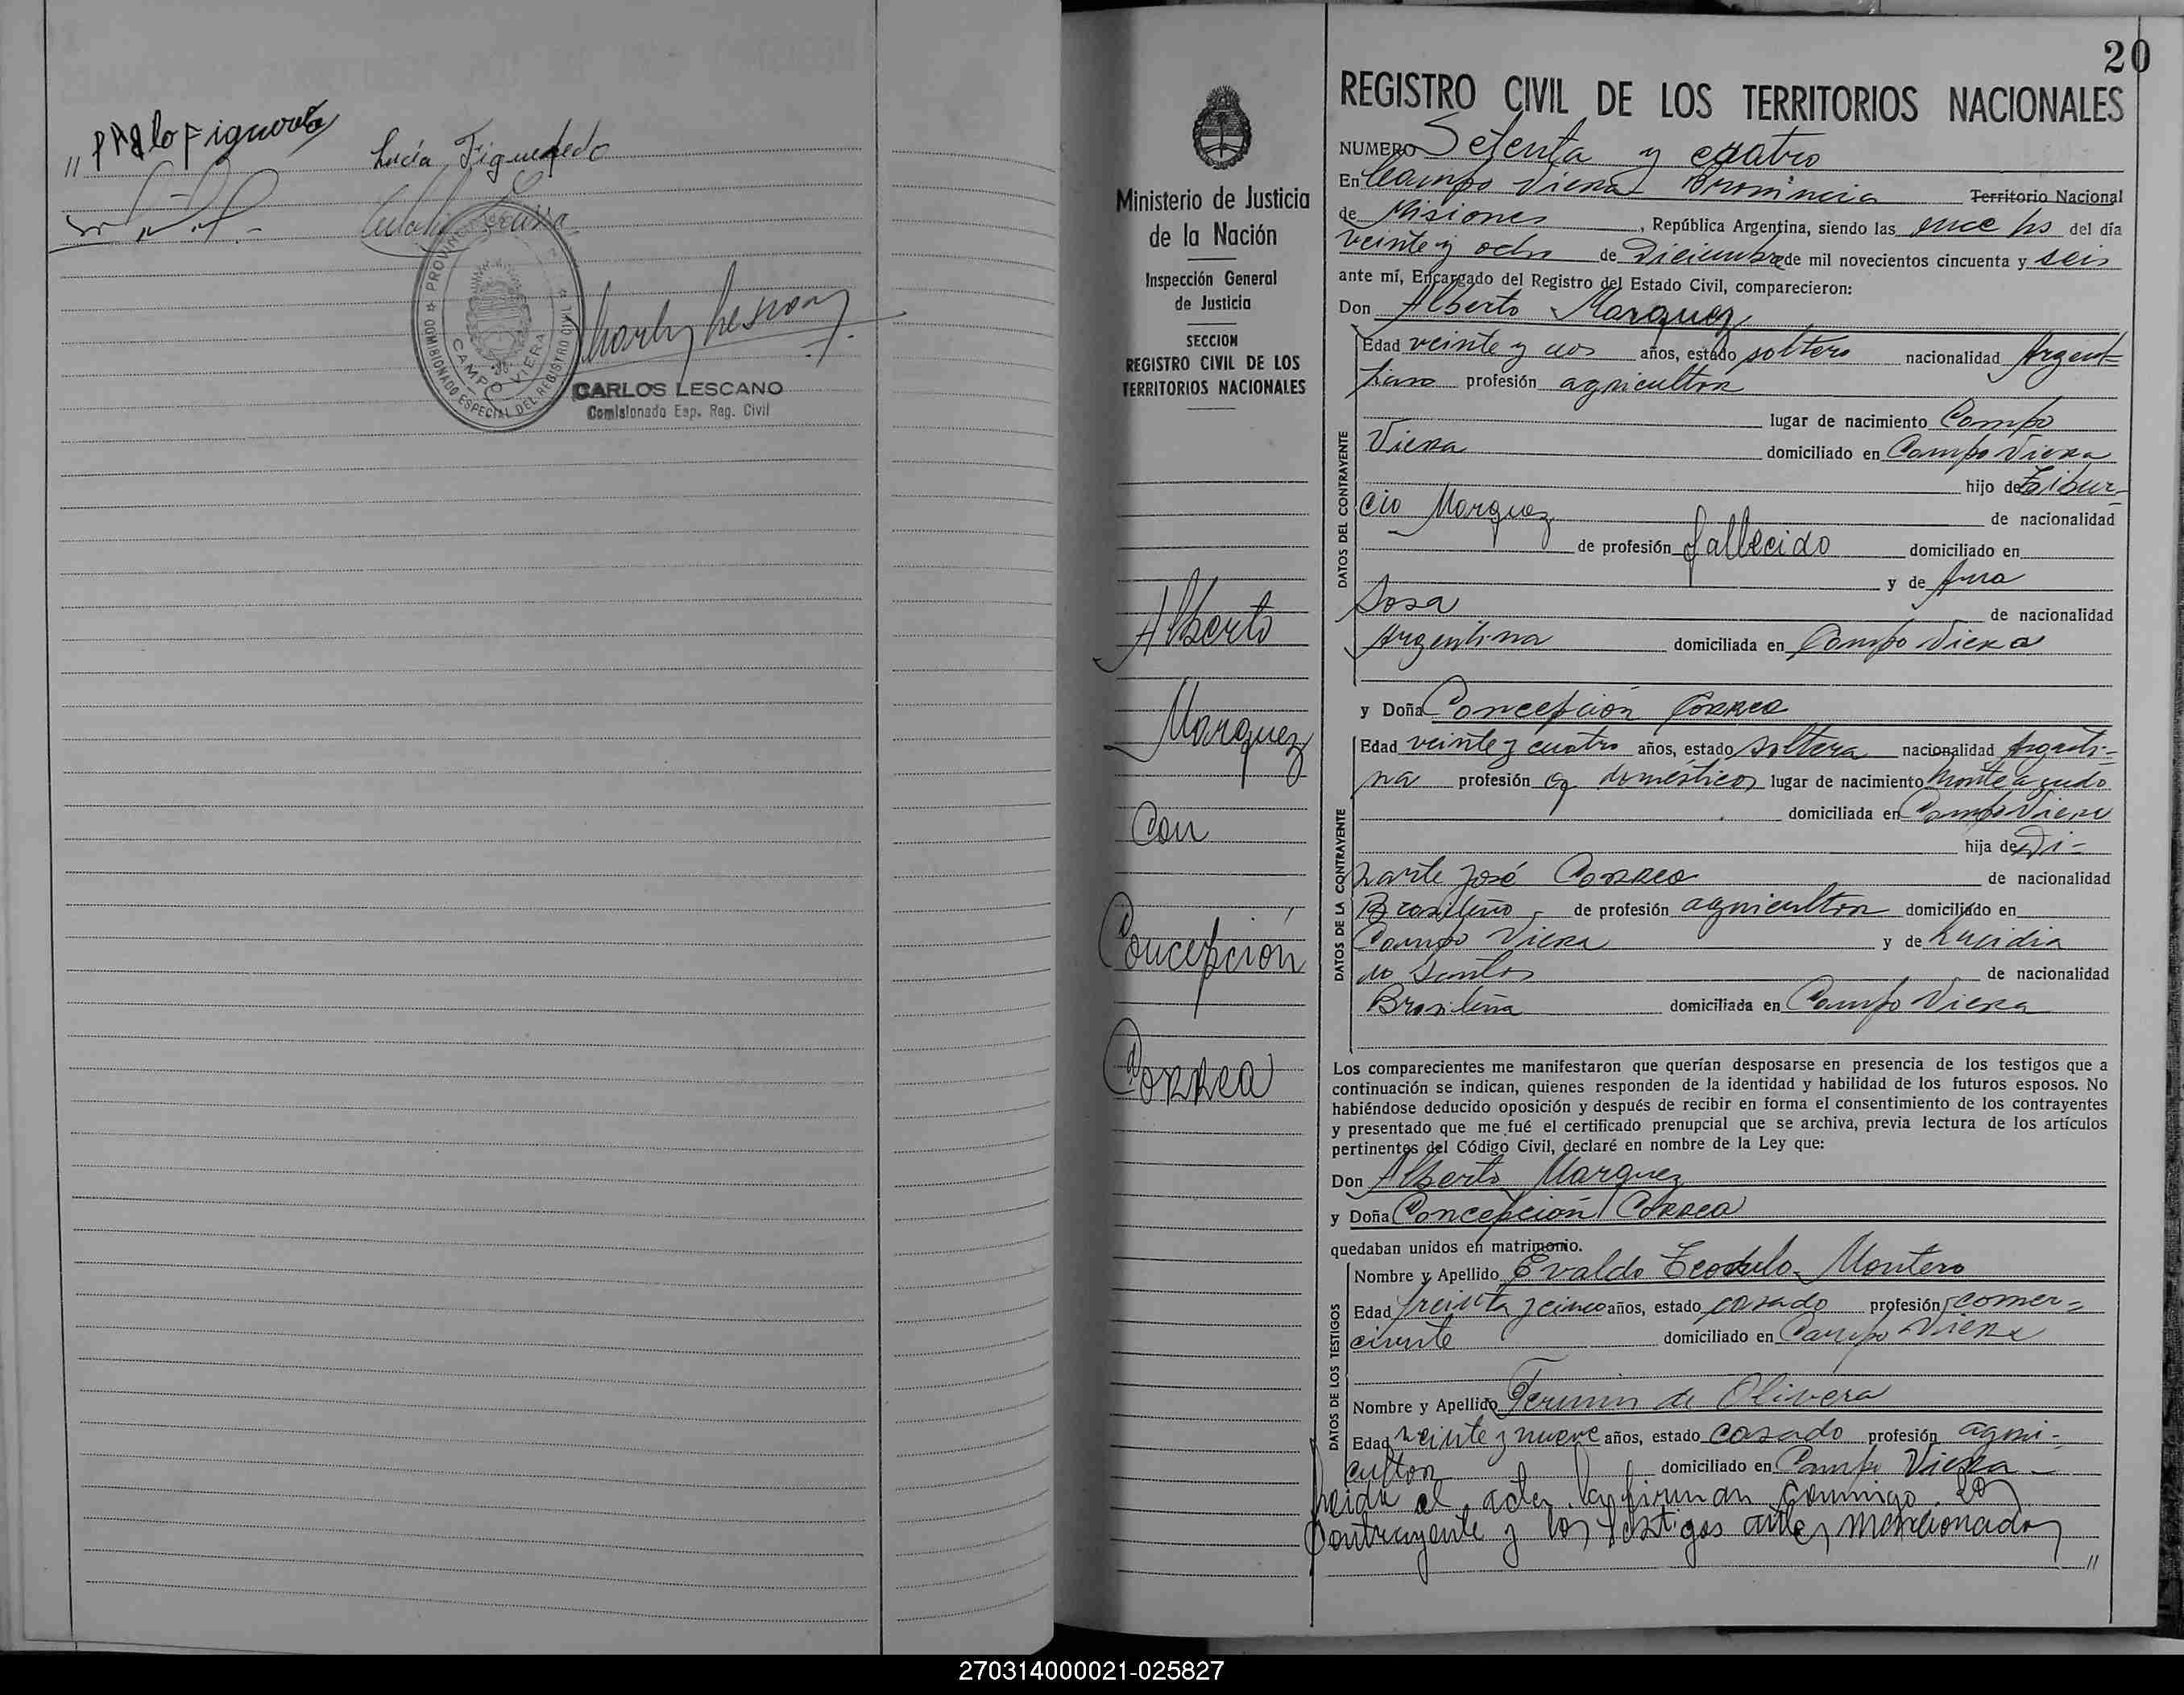 Pablo Figueredo
Lucía Figueredo
PROVINCIA
CAMPO VIERA
COMISIONADO ESPECIAL DEL REGISTRO CIVIL
CARLOS LESCANO
Comisionado Esp. Reg. Civil
20
Ministerio de Justicia
de la Nación
Inspección General
de Justicia
SECCION
REGISTRO CIVIL DE LOS
TERRITORIOS NACIONALES
Alberto
Marquez
Con
Concepción
Correa
REGISTRO CIVIL DE LOS TERRITORIOS NACIONALES
NUMERO Setenta y cuatro
En Campo Viera Provincia Territorio Nacional
de Misiones, República Argentina, siendo las once hs del día
veinte y ocho de Diciembre de mil novecientos cincuenta y seis
ante mí, Encargado del Registro del Estado Civil, comparecieron:
Don Alberto Marquez
DATOS DEL CONTRAYENTE
Edad veinte y dos años, estado soltero nacionalidad Argen=
tino profesión agricultor
lugar de nacimiento Campo
Viera domiciliado en Campo Viera
hijo de Tibur-
cio Marquez de nacionalidad
de profesión fallecido domiciliado en
y de Ana
Sosa de nacionalidad
Argentina domiciliada en Campo Viera
y Doña Concepción Correa
DATOS DE LA CONTRAYENTE
Edad veinte y cuatro años, estado soltera nacionalidad Argenti-
na profesión q domésticos lugar de nacimiento Monteagudo
domiciliada en Campo Viera
hija de Di-
narte José Correa de nacionalidad
Brasileño, de profesión agricultor domiciliado en
Campo Viera y de Lucidia
do Santos de nacionalidad
Brasileña domiciliada en Campo Viera
Los comparecientes me manifestaron que querían desposarse en presencia de los testigos que a
continuación se indican, quienes responden de la identidad y habilidad de los futuros esposos. No
habiéndose deducido oposición y después de recibir en forma el consentimiento de los contrayentes
y presentado que me fué el certificado prenupcial que se archiva, previa lectura de los artículos
pertinentes del Código Civil, declaré en nombre de la Ley que:
Don Alberto Marquez
y Doña Concepción Correa
quedaban unidos en matrimonio.
DATOS DE LOS TESTIGOS
Nombre y Apellido Evaldo Teodulo Montero
Edad treinta y cinco años, estado casado profesión comer=
ciante domiciliado en Campo Viera
Nombre y Apellido Fermin de Olivera
Edad veinte y nueve años, estado casado profesión agri-
cultor domiciliado en Campo Viera -
Leida el acta, la firman conmigo los
Contrayente y los testigos antes mencionados
//
270314000021-025827